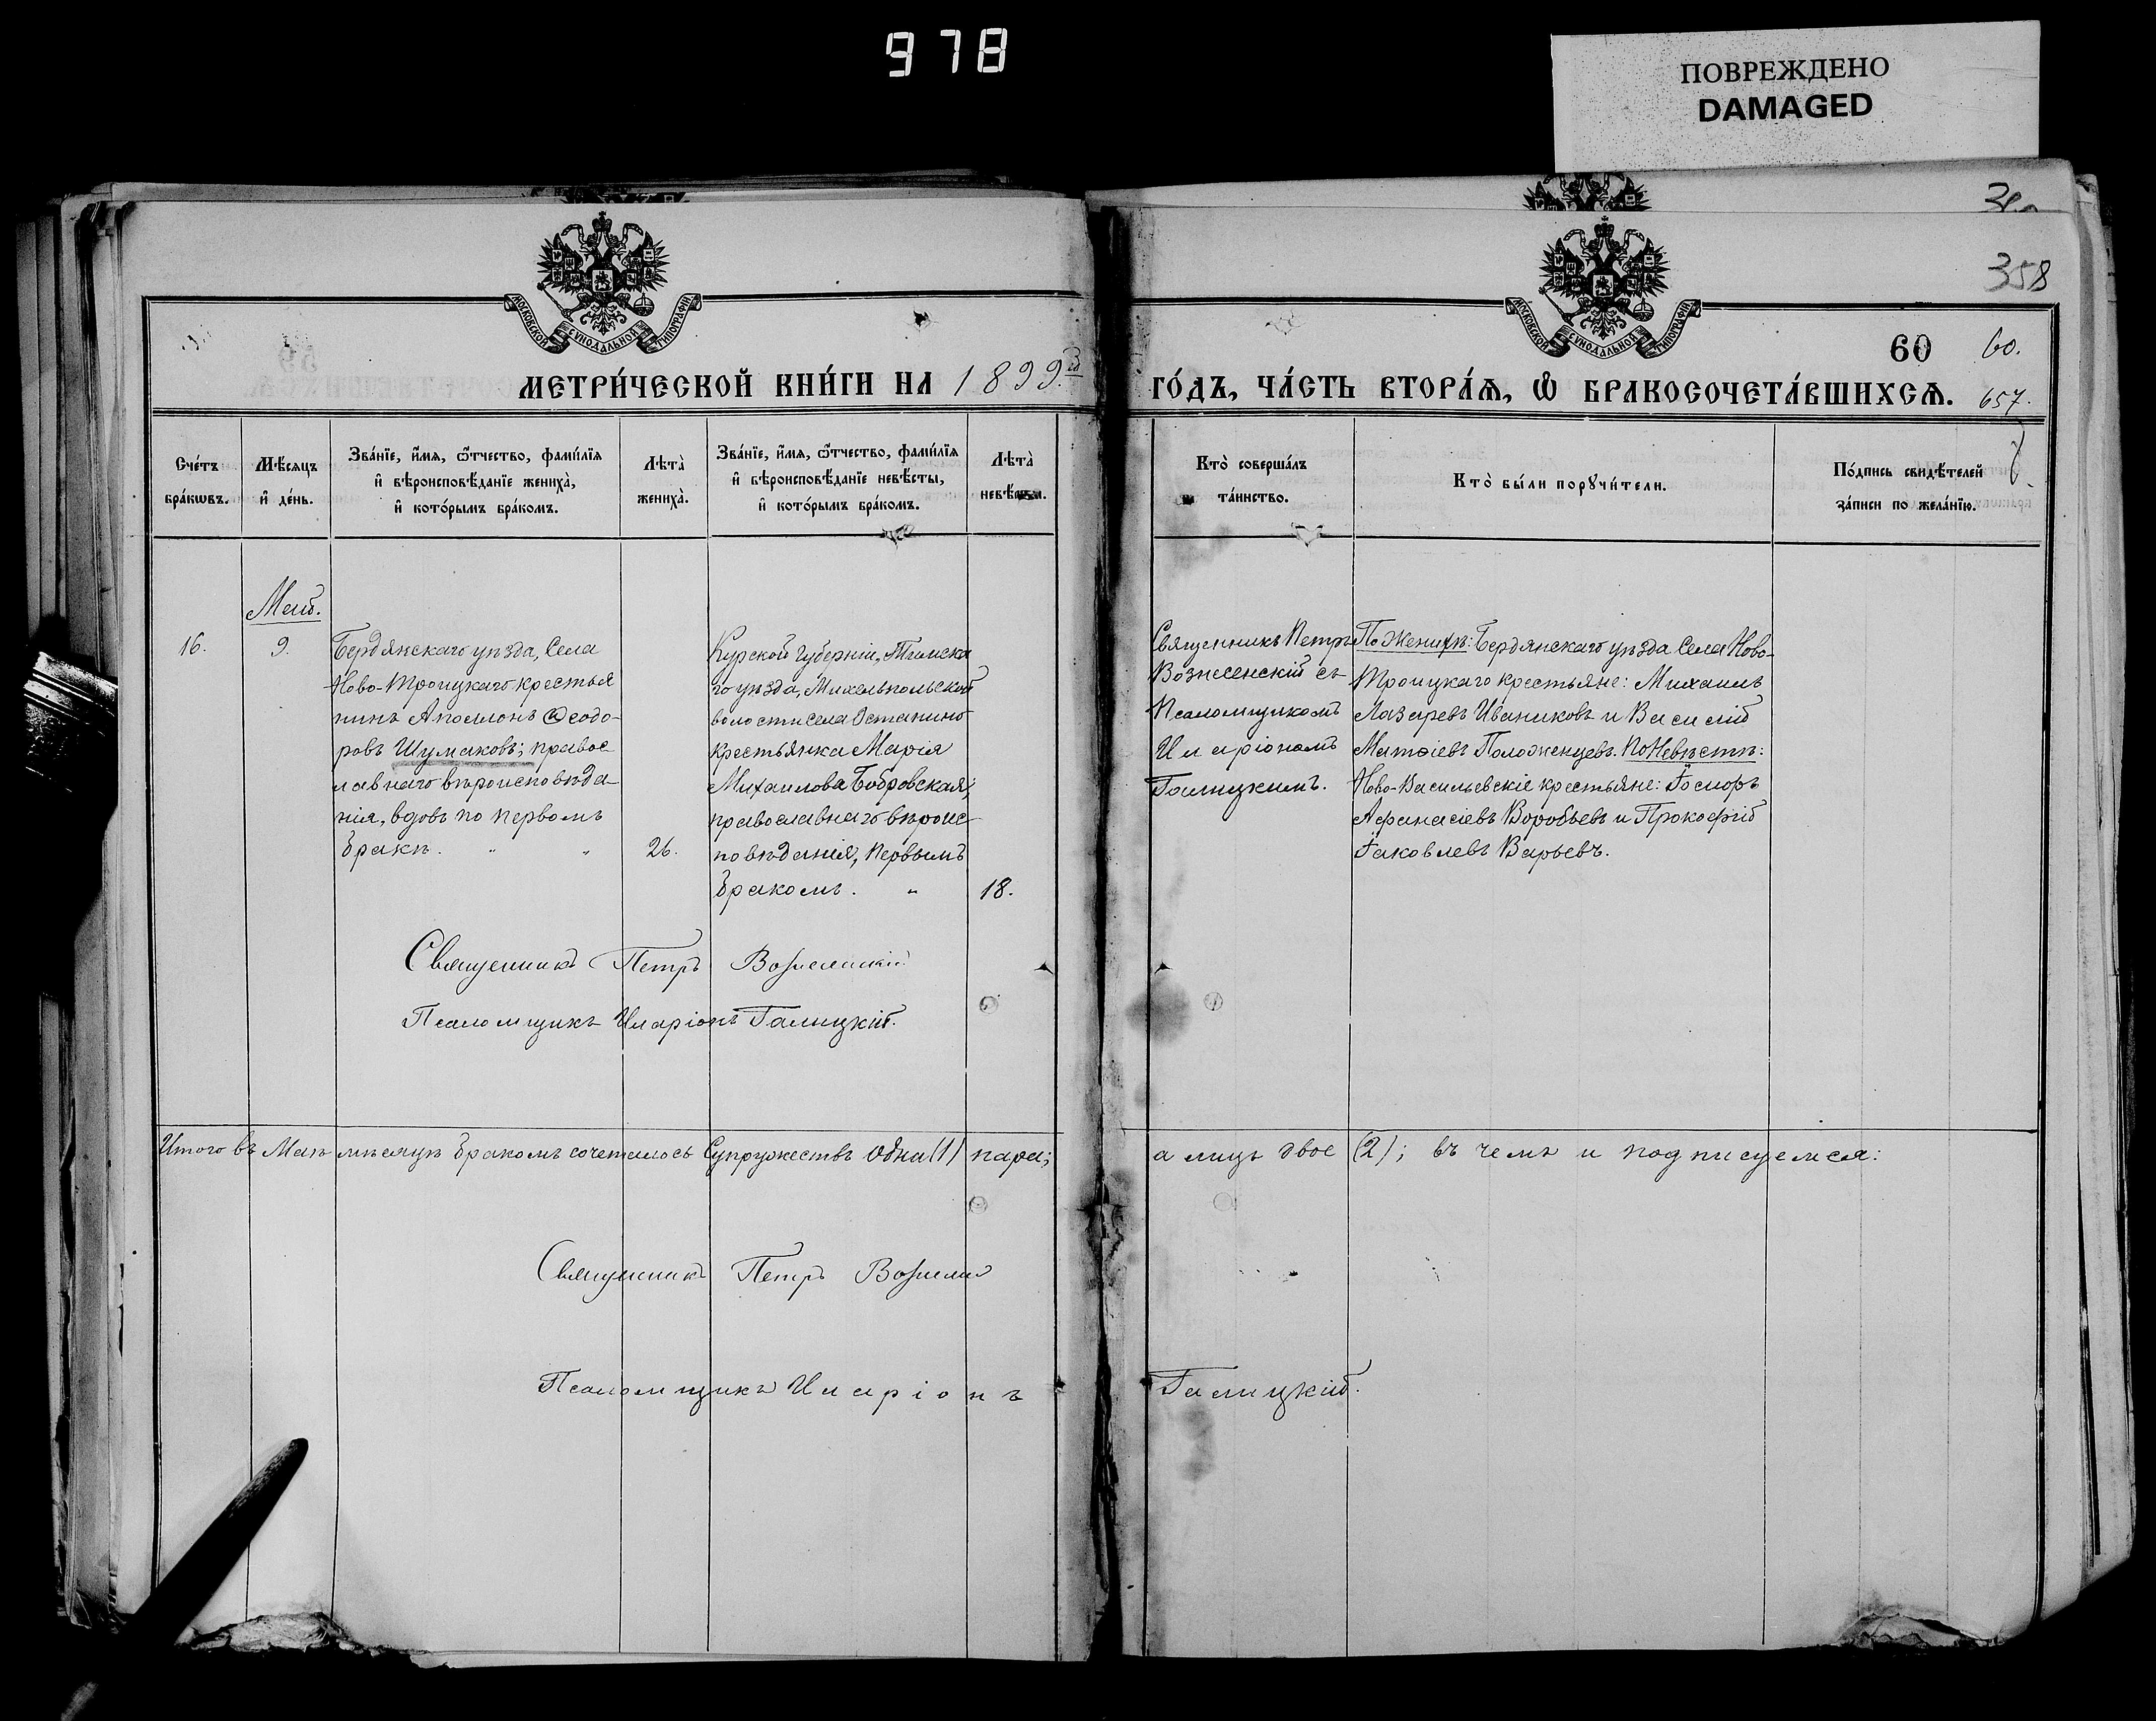 978
ПОВРЕЖДЕНО
DAMAGED
358
МОСКОВСКОЙ СѴНОДАЛЬНОЙ ТИПОГРАФІИ
МОСКОВСКОЙ СѴНОДАЛЬНОЙ ТИПОГРАФІИ
60 60.
МЕТРИ́ЧЕСКОЙ КНИ́ГИ НА 1899.й
ГО́ДЪ, ЧА́СТЬ ВТОРА́Ѧ, Ѽ БРАКОСОЧЕТА́ВШИХСѦ. 657.
Сче́тъ бра́кѡвъ.
Мѣ́сѧцъ и҆ де́нь.
Зва́нїе, и҆́мѧ, ѻ҆́тчество, фами́лїѧ
и҆ вѣроисповѣ́данїе жениха̀,
и҆ кото́рымъ бра́комъ.
Лѣта̀ жениха̀.
Зва́нїе, и҆́мѧ, ѻ҆́тчество, фами́лїѧ
и҆ вѣроисповѣ́данїе невѣ́сты,
и҆ кото́рымъ бра́комъ.
Лѣта̀ невѣ́сты.
Кто̀ соверша́лъ
та́инство.
Кто̀ бы́ли порꙋчи́тели.
По́дпись свидѣ́телей
за́писи по жела́нїю.
Май.
16.
9.
Бердянскаго уѣзда, Села
Ново-Троицкаго крестья
нинъ Аполлонъ Ѳеодо-
ровъ Шумаковъ; правос
лавнаго вѣроисповѣда-
нія, вдовъ по первомъ
бракѣ. " "
26.
Курской Губерніи, Тимска
го уѣзда, Михельпольской
волости села Останино
крестьянка Марія
Михаилова Бобровская;
православнаго вѣроис-
повѣданія, первымъ
бракомъ. "
18.
Священникъ Петръ
Вознесенскій съ
Псаломщикомъ
Иларіономъ
Галицкимъ.
По Женихѣ: Бердянскаго уѣзда Села Ново-
Троицкаго крестьяне: Михаилъ
Лазаревъ Иваниковъ и Василій
Матѳіевъ Положенцевъ. По Невѣстѣ:
Ново-Васильевскіе крестьяне:
Аѳанасіевъ Воробьевъ и Прокофій
Іаковлевъ Варьевъ.
Священникъ Петръ Вознесенскій
Псаломщикъ Иларіонъ Галицкій.
Итого въ Маѣ мѣсяцѣ бракомъ сочеталось Супружествъ одна (1) пара;
а лицъ двое (2); въ чемъ и подписуемся:
Священникъ Петръ
Псаломщикъ Иларіонъ
Галицкій.